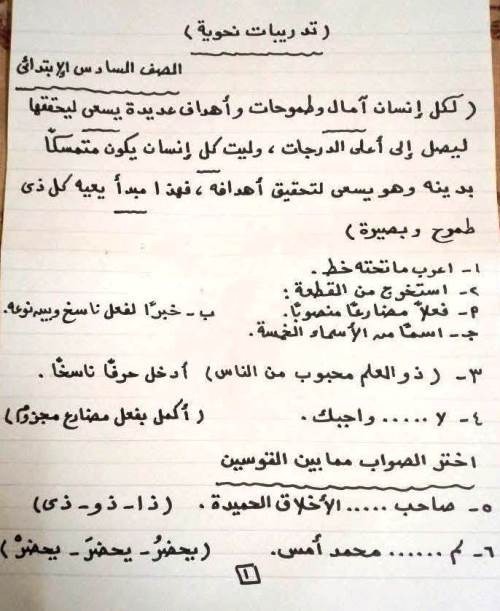 ( تدريبات نحوية )
الصف السادس الابتدائى
( لكل إنسان آمال وطموحات وأهداف عديدة يسعى ليحققها
ليصل إلى أعلى الدرجات ، وليت كل إنسان يكون متمسكًا
بدينه وهو يسعى لتحقيق أهدافه ، فهذا مبدأ يعيه كل ذى
طموح وبصيرة )
١- اعرب ماتحته خط .
٢- استخرج من القطعة :
٩- فعلاً مضارعًا منصوبًا. ب- خبرًا لفعل ناسخ وبين نوعه.
جـ- اسمًا من الأسماء الخمسة.
٣- ( ذو العلم محبوب من الناس ) أدخل حرفًا ناسخًا.
٤- لا ..... واجبك . ( أكمل بفعل مضارع مجزوم )
اختر الصواب ممابين القوسين
٥- صاحب ..... الأخلاق الحميدة . ( ذا - ذو - ذى )
٦- لم ...... محمد أمس. ( يحضرُ - يحضرَ - يحضرْ )
١